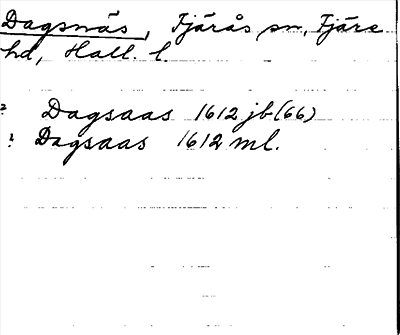 Dagsnäs, Fjärås sn, Fjäre
hd, Hall. l.
? Dagsaas 1612 jb (66)
! Dagsaas 1612 ml.